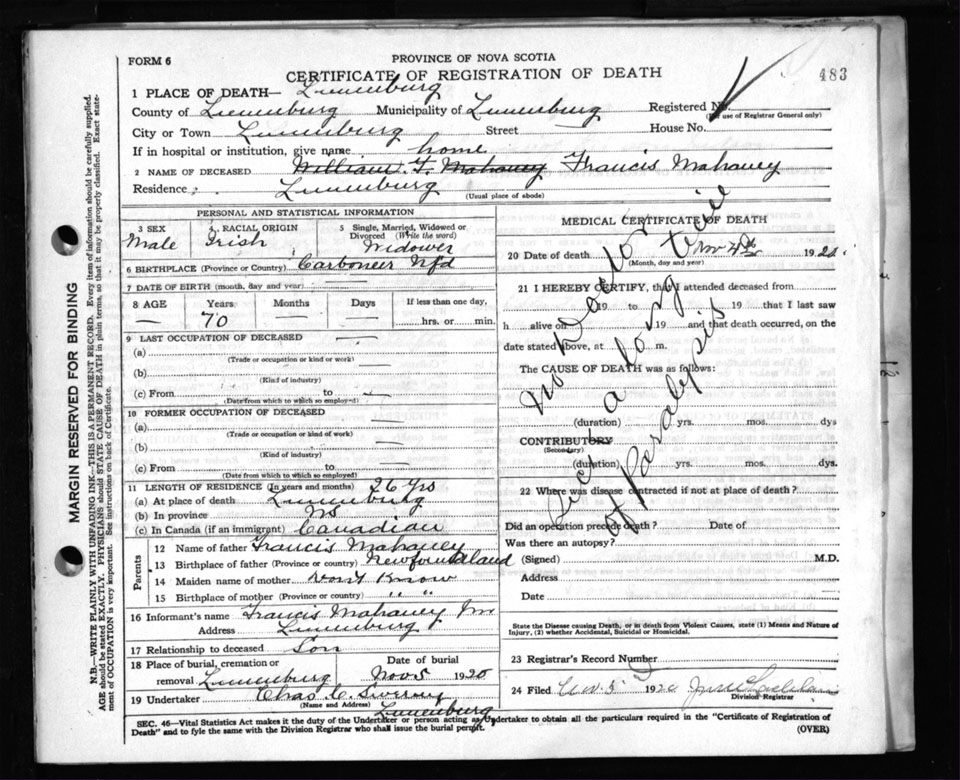 FORM 6
PROVINCE OF NOVA SCOTIA
CERTIFICATE OF REGISTRATION OF DEATH
483
1 PLACE OF DEATH— Lunenburg
County of Lunenburg Municipality of Lunenburg Registered No.
(For use of Registrar General only)
City or Town Lunenburg Street House No.
If in hospital or institution, give name home
2 NAME OF DECEASED William F. Mahaney Francis Mahaney
Residence Lunenburg (Usual place of abode)
PERSONAL AND STATISTICAL INFORMATION
3 SEX Male
RACIAL ORIGIN Irish
5 Single, Married, Widowed or Divorced (Write the word) Widower
6 BIRTHPLACE (Province or Country) Carboneer Nfd
7 DATE OF BIRTH (month, day and year) —
8 AGE Years Months Days If less than one day,
— 70 — — hrs. or min.
9 LAST OCCUPATION OF DECEASED —
(a) —
(Trade or occupation or kind or work)
(b)
(Kind of industry)
(c) From to —
(Date from which to which so employed)
10 FORMER OCCUPATION OF DECEASED —
(a)
(Trade or occupation or kind of work)
(b) —
(Kind of industry)
(c) From to —
(Date from which to which so employed)
11 LENGTH OF RESIDENCE (In years and months) 26 Yrs
(a) At place of death Lunenburg
(b) In province NS
(c) In Canada (if an immigrant) Canadian
Parents
12 Name of father Francis Mahaney
13 Birthplace of father (Province or country) Newfoundland
14 Maiden name of mother Don't Know
15 Birthplace of mother (Province or country) " "
16 Informant's name Francis Mahaney
Address Lunenburg
17 Relationship to deceased Son
18 Place of burial, cremation or removal Lunenburg Date of burial Nov 5 1920
19 Undertaker Chas C. Sweeny
(Name and Address) Lunenburg
MEDICAL CERTIFICATE OF DEATH
20 Date of death Nov 4th 1920
(Month, day and year)
21 I HEREBY CERTIFY, that I attended deceased from
19 to 19 that I last saw
h alive on 19 and that death occurred, on the
date stated above, at m.
The CAUSE OF DEATH was as follows:
No Doctor
Sick a long time
of Paralypsis
(duration) yrs. mos. dys
CONTRIBUTORY
(Secondary)
(duration) yrs. mos. dys.
22 Where was disease contracted if not at place of death?
Did an operation precede death? Date of
Was there an autopsy?
(Signed) M.D.
Address
Date
State the Disease causing Death, or in death from Violent Causes, state (1) Means and Nature of
Injury, (2) whether Accidental, Suicidal or Homicidal.
23 Registrar's Record Number
24 Filed Nov 5 1920
Division Registrar
SEC. 46—Vital Statistics Act makes it the duty of the Undertaker or person acting as Undertaker to obtain all the particulars required in the "Certificate of Registration of
Death" and to fyle the same with the Division Registrar who shall issue the burial permit. (OVER)
MARGIN RESERVED FOR BINDING
N.B.—WRITE PLAINLY WITH UNFADING INK—THIS IS A PERMANENT RECORD. Every item of information should be carefully supplied.
AGE should be stated EXACTLY. PHYSICIANS should STATE CAUSE OF DEATH in plain terms, so that it may be properly classified. Exact state-
ment of OCCUPATION is very important. See instructions on back of Certificate.